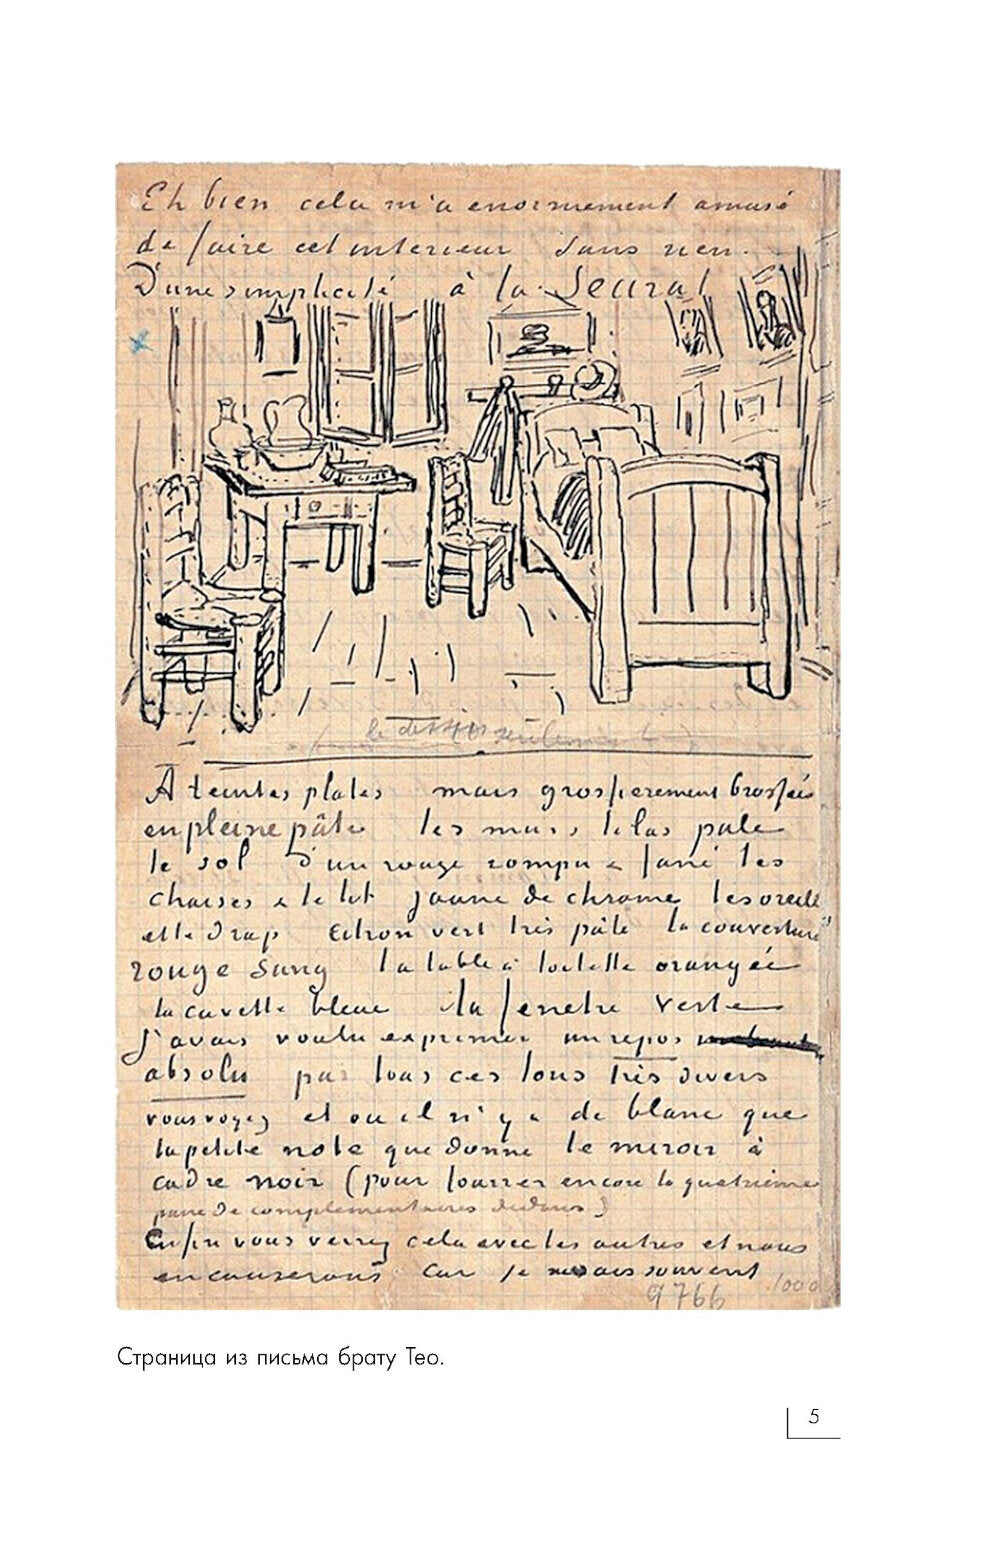 Eh bien cela m'a enormement amusé
de faire cet interieur sans rien.
D'une simplicité à la Seurat
A teintes plates mais grossierement brossées
en pleine pâte les murs lilas pale
le sol d'un rouge rompu & fané les
chaises & le lit jaune de chrome les oreillers
et le drap citron vert très pâle la couverture
rouge sang la table à toilette orangée
la cuvette bleue la fenetre verte
J'avais voulu exprimer un repos
absolu par tous ces tons très divers
vous voyez et ou il n'y a de blanc que
la petite note que donne le miroir à
cadre noir (pour fourrer encore la quatrieme
paire de complementaires dedans)
Enfin vous verrez cela avec les autres et nous
en causerons car je ne sais souvent
9766 1000
Страница из письма брату Тео.
5